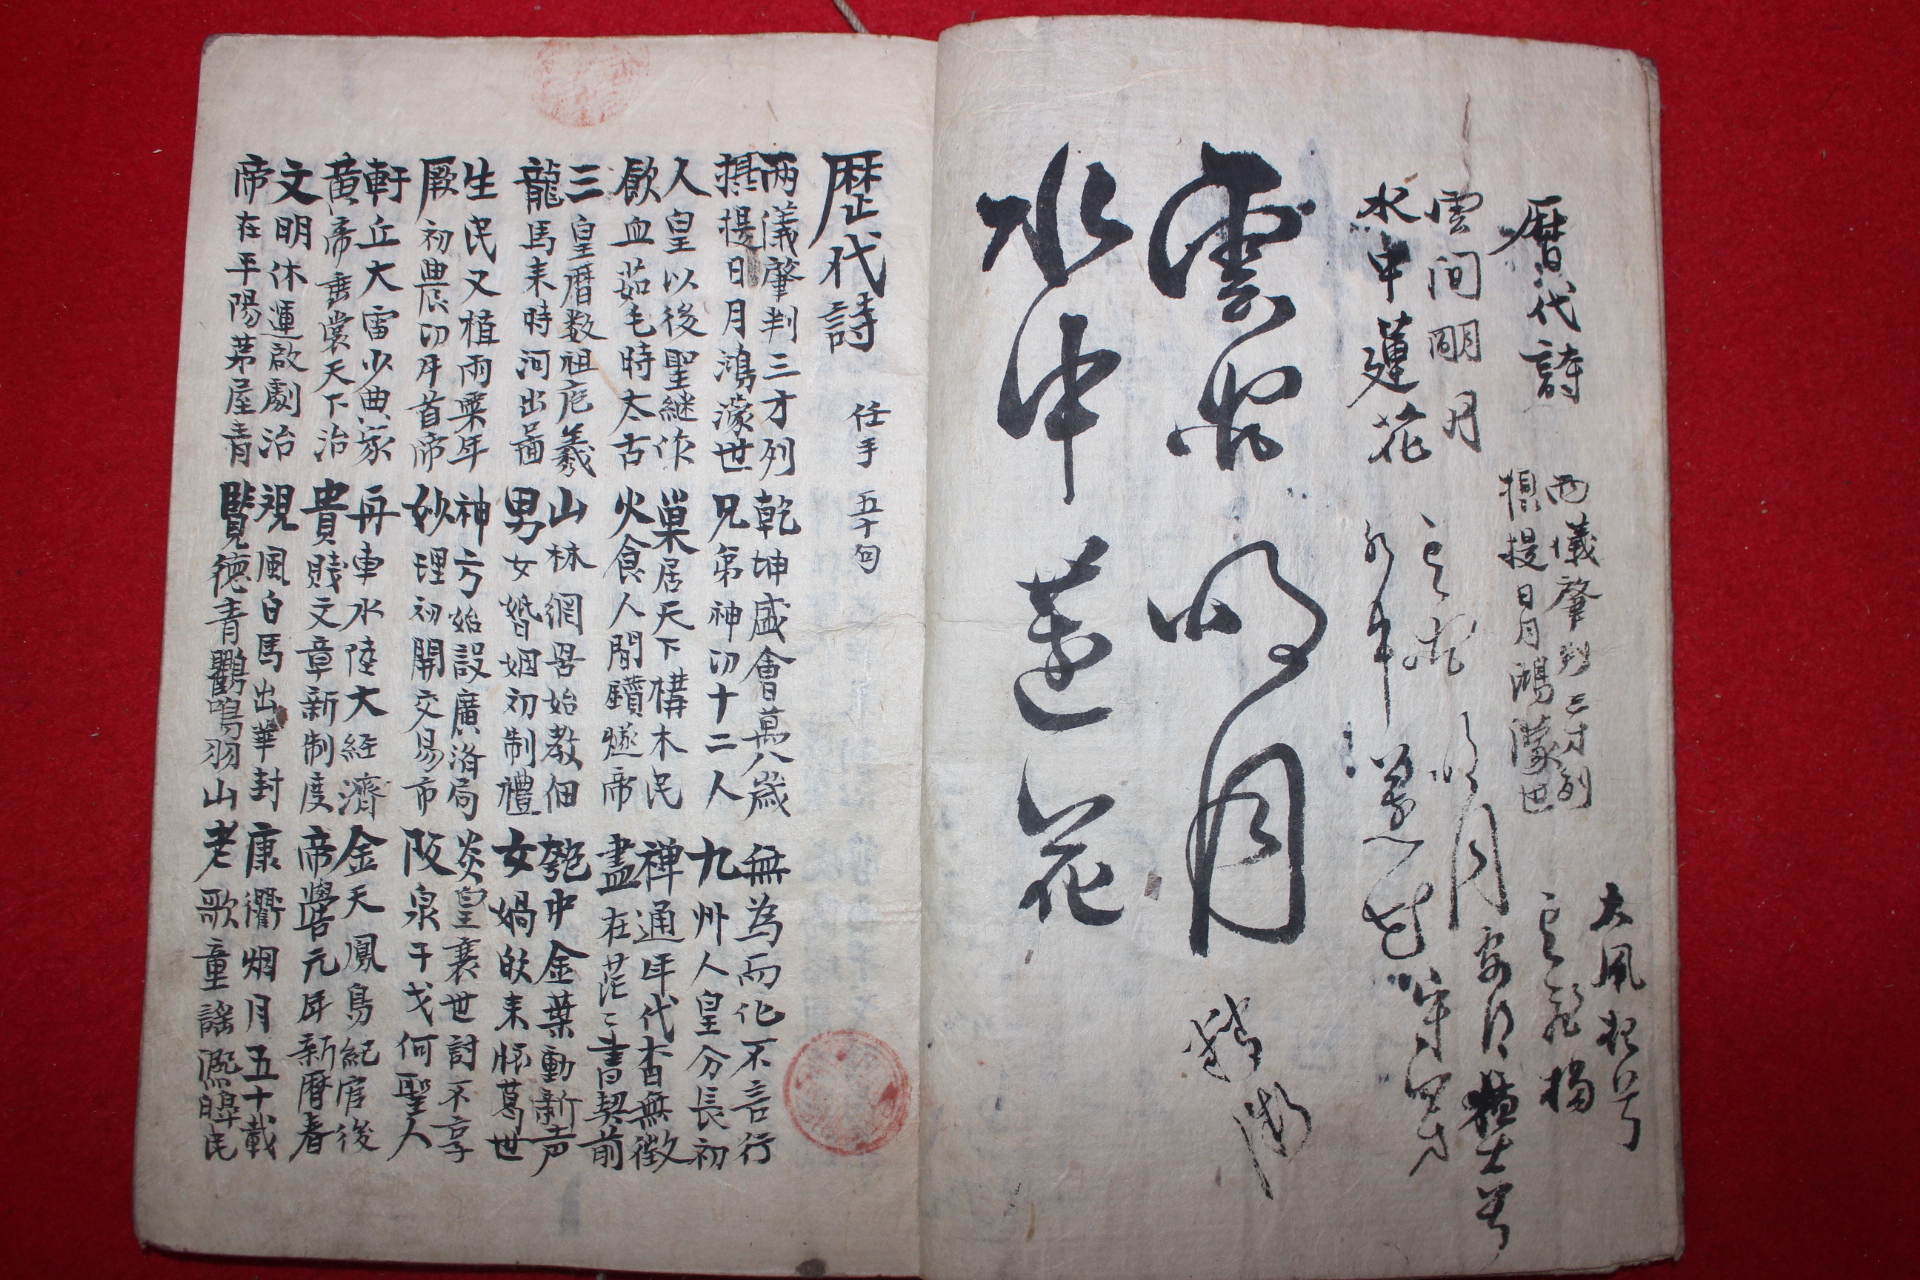 曆代詩
雲間明月
水中蓮花
兩儀肇判三才列
攝提日月鴻濛世
雲間明月
水中蓮花
大風起兮
雲飛揚
安得猛士兮
守四方
雲間明月
水中蓮花
歷代詩 任手 五十句
兩儀肇判三才列 乾坤盛會萬八歲 無為而化不言行
攝提日月鴻濛世 兄弟神功十二人 九州人皇分長初
人皇以後聖継作 巢居天下構木民 禅通年代杳無徴
飮血茹毛時太古 火食人間鑽燧帝 盡在茫〻書契前
三皇曆数祖庖羲 山林網罟始教佃 匏中金葉動新声
龍馬来時河出圖 男女婚姻初制禮 女媧 来 葛世
生民又植雨粟年 神方始設廣济局 炎皇衰世討不享
厥初農功年首帝 妙理初開交易市 阪泉干戈何聖人
軒丘大雷少典家 舟車水陸大経濟 金天鳳鳥紀官後
黃帝垂裳天下治 貴賤文章新制度 帝嚳元年新曆春
文明休運啟劇治 視風白馬出華封 康衢烟月五十載
帝在平陽茅屋青 覽德青鸐鳴羽山 老歌童謠凞皥民